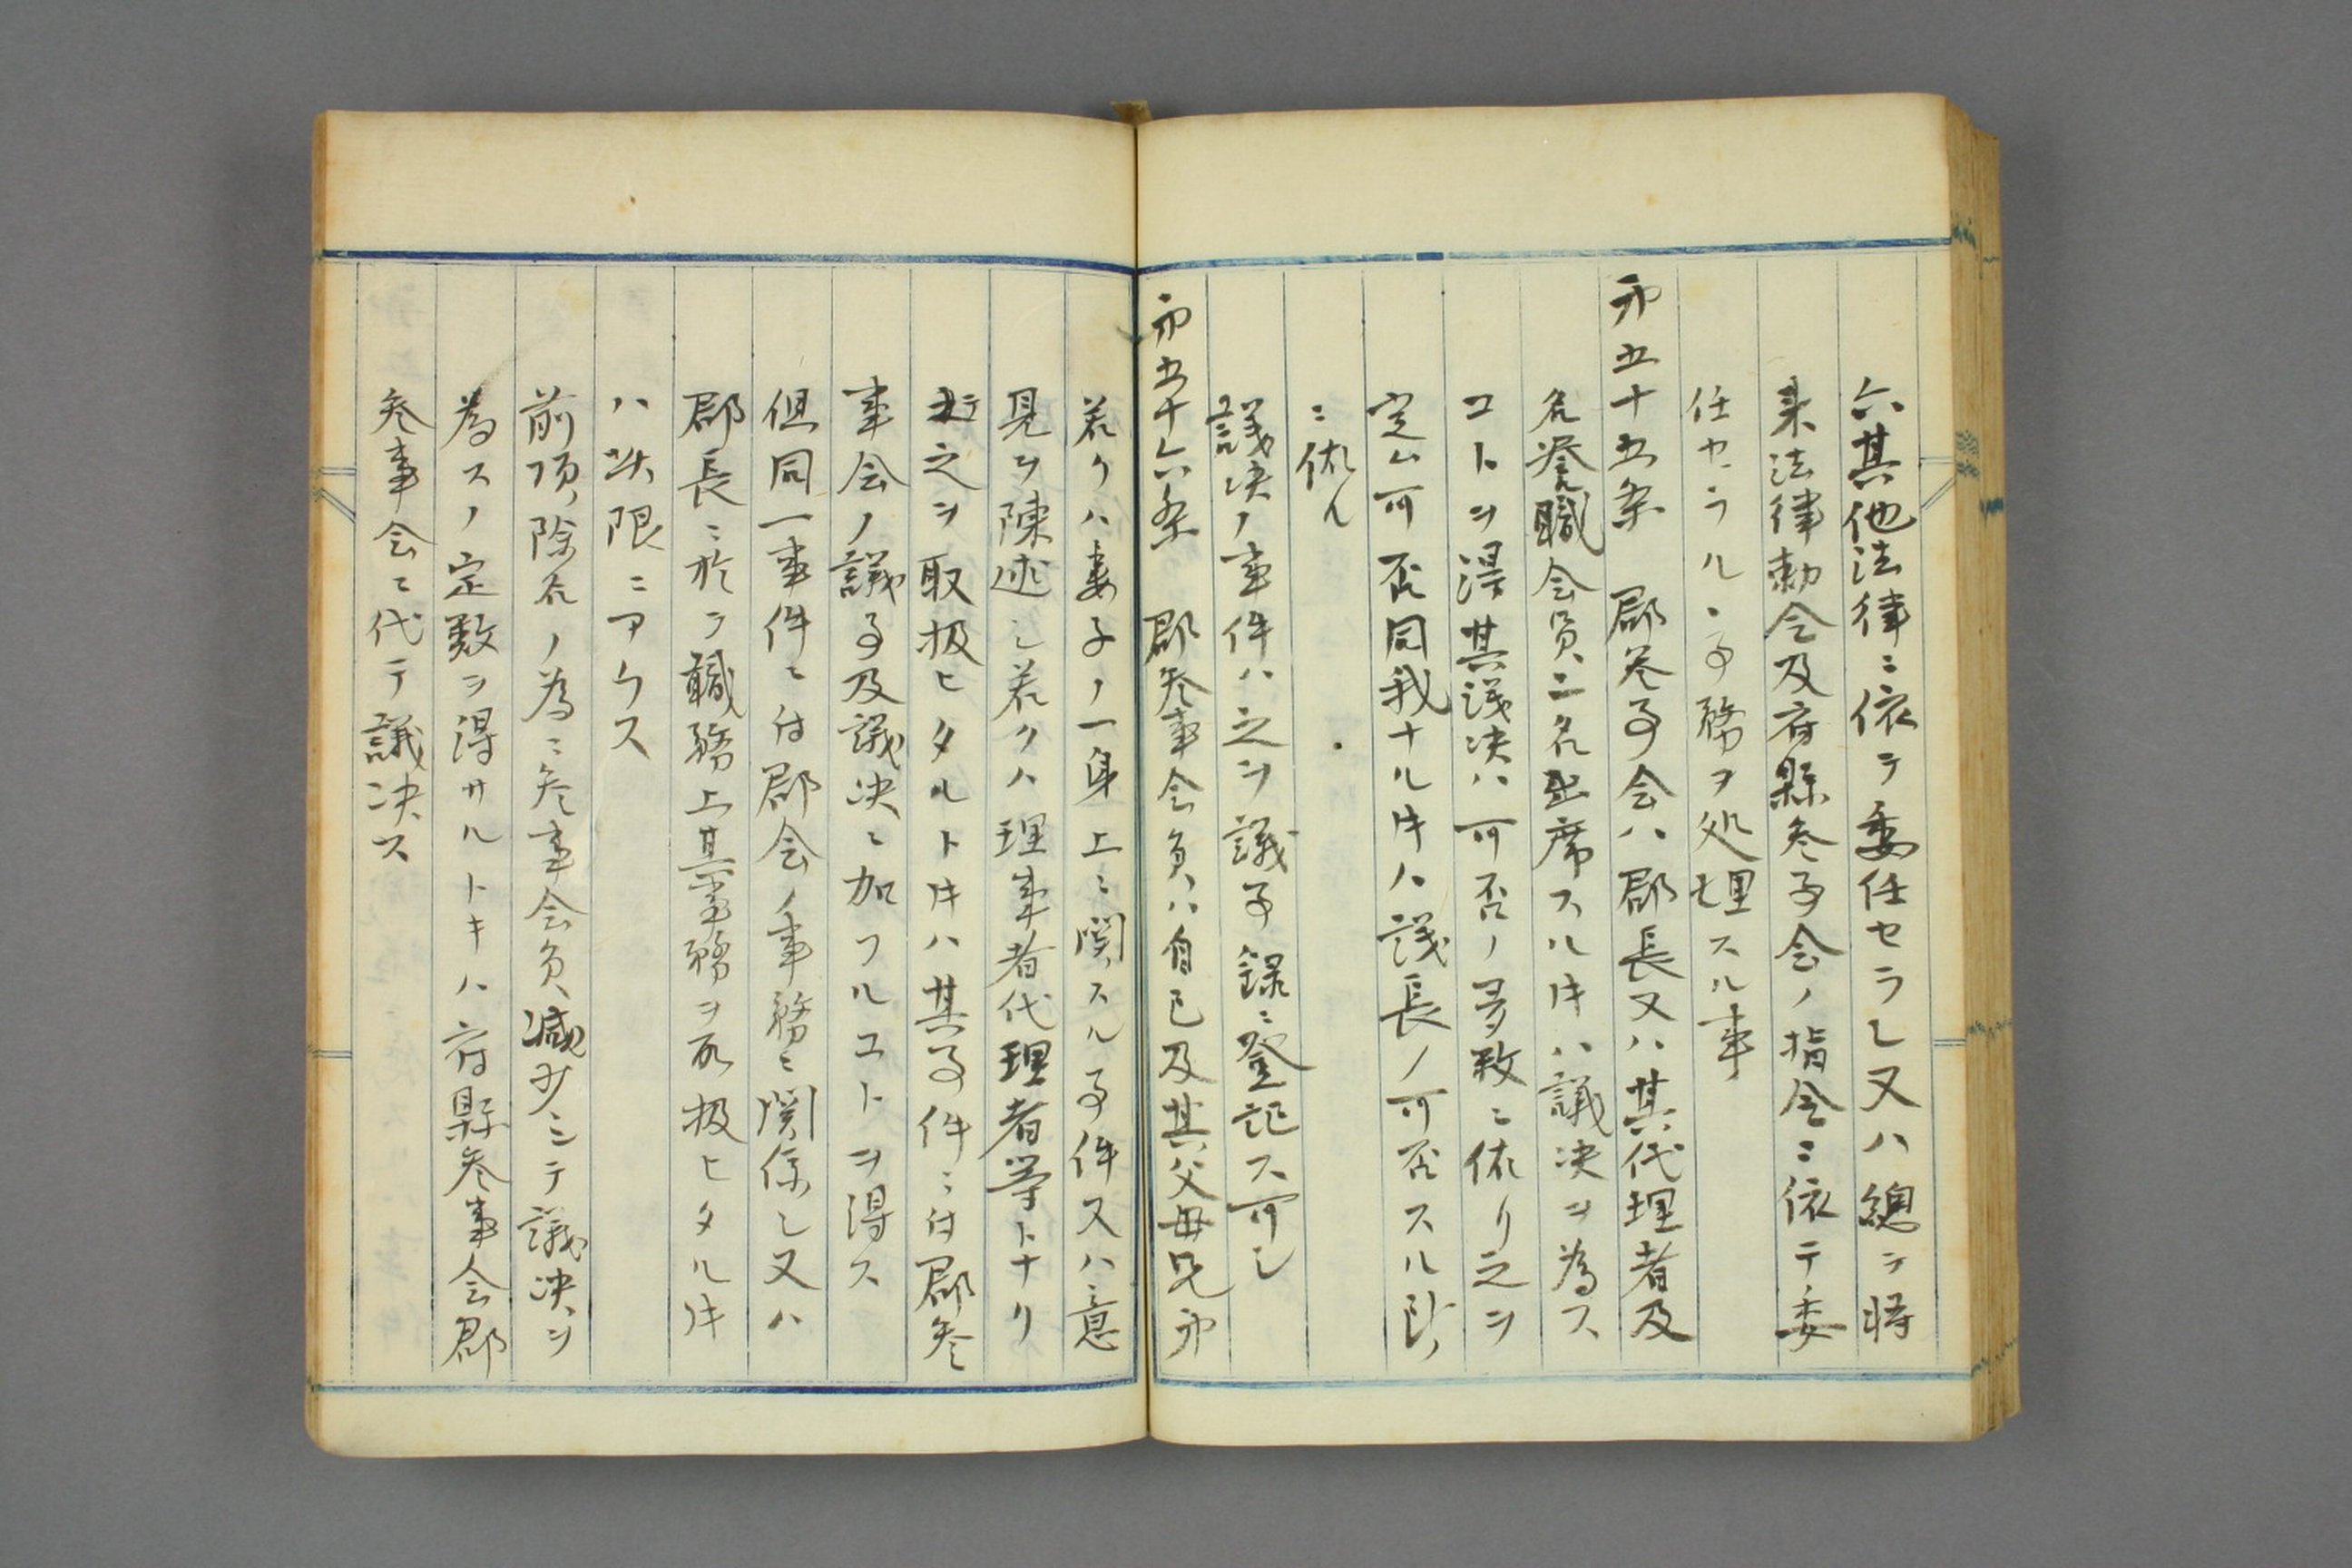 六其他法律ニ依テ委任セラレ又ハ總テ將
来法律勅令及府縣参事会ノ指令ニ依テ委
任セラルヽ事務ヲ処理スル事
第五十五条　郡参事会ハ郡長又ハ其代理者及
名誉職会員二名出席スル片ハ議决ヲ為ス
コトヲ得其議决ハ可否ノ多数ニ依リ之ヲ
定ム可否同数ナル片ハ議長ノ可否スル所
ニ依ル
議决ノ事件ハ之ヲ議事録ニ登記ス可シ
第五十六条　郡参事会員ハ自己及其父母兄弟
若クハ妻子ノ一身上ニ関スル事件又ハ意
見ヲ陳述シ若クハ理事者代理者等トナリ
テ之ヲ取扱ヒタルト片ハ其事件ニ付郡参
事会ノ議事及議决ニ加フルコトヲ得ス
但同一事件ニ付郡会ノ事務ニ関係シ又ハ
郡長ニ於テ職務上其事務ヲ取扱ヒタル片
ハ此限ニアラス
前項除名ノ為ニ参事会員減少シテ議决ヲ
為スノ定数ヲ得サルトキハ府縣参事会郡
参事会ニ代テ議决ス